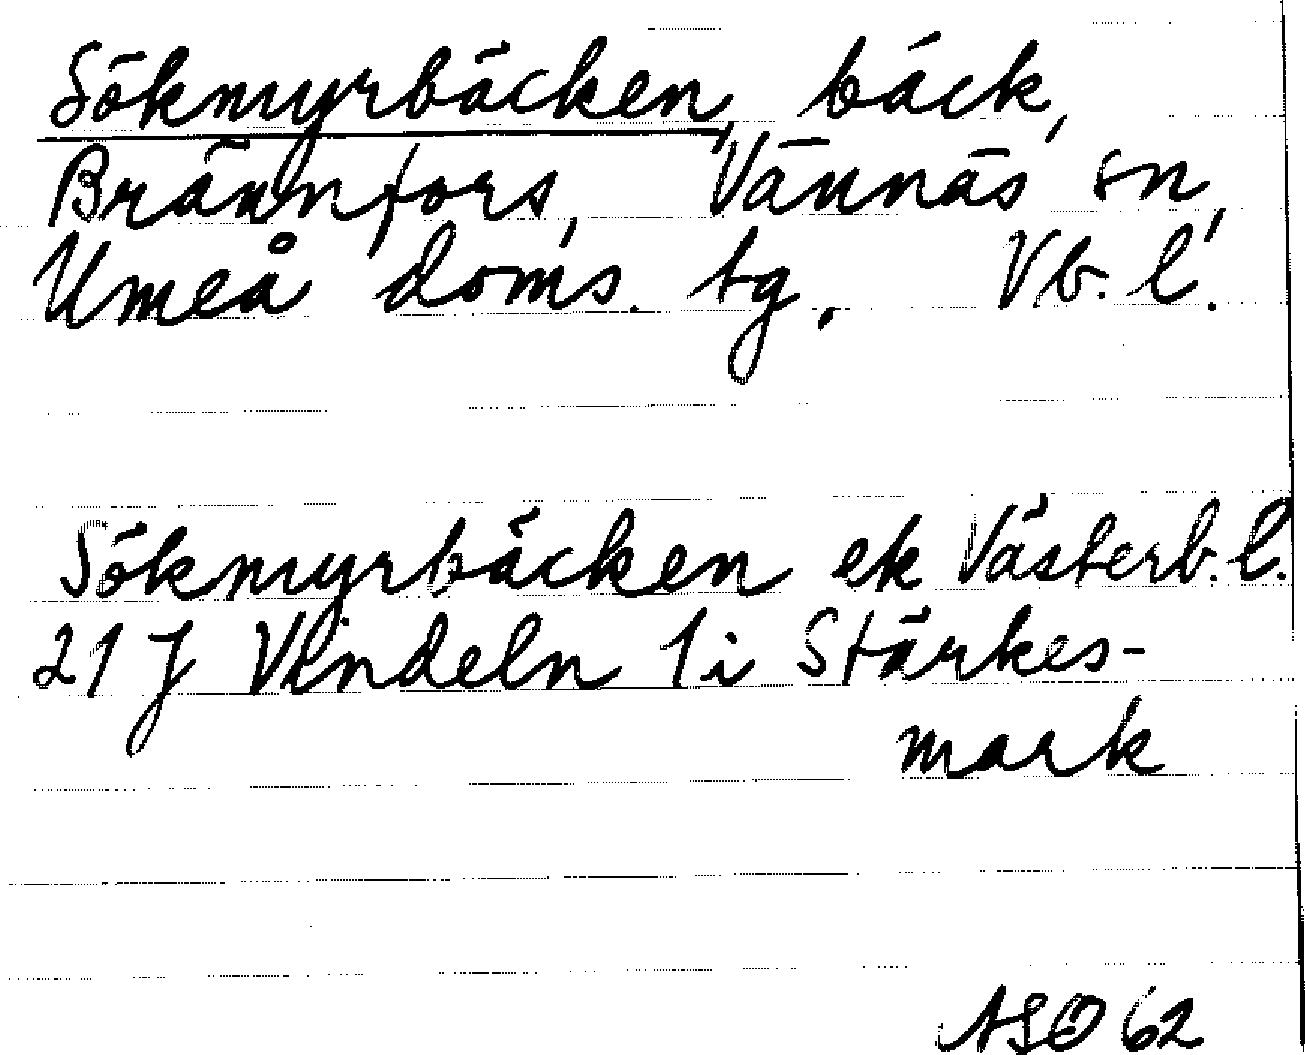 Sökmyrbäcken, bäck,
Brännfors, Vännäs sn,
Umeå doms. tg, Vb. l.
Sökmyrbäcken ek Västerb. l.
21 J Vindeln 1i Stärkes-
mark
ASO 62